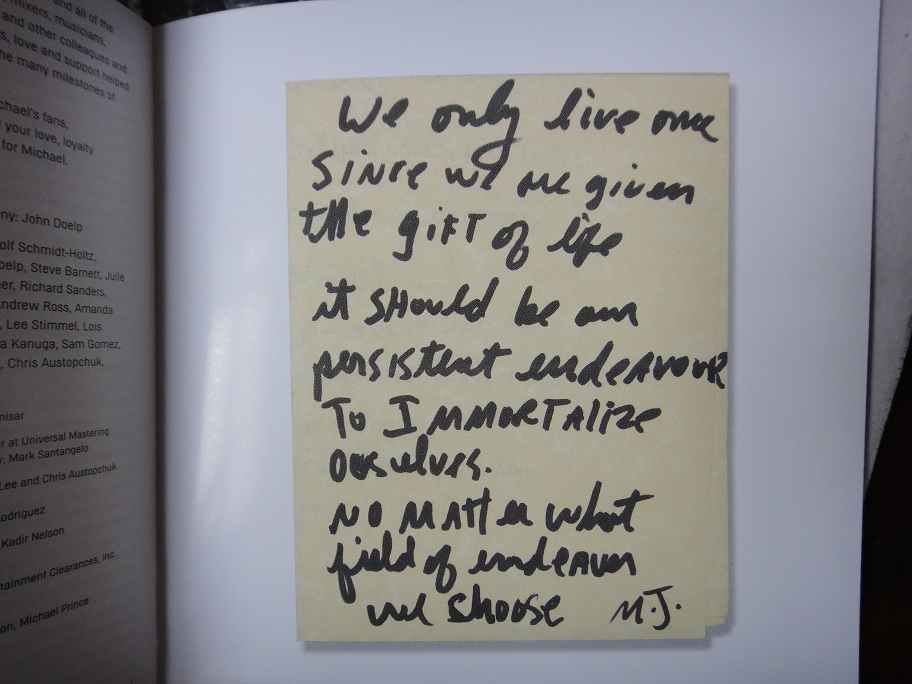 and all of the
mixers, musicians,
and other colleagues and
s, love and support helped
he many milestones of
chael's fans,
your love, loyalty
for Michael.
ny: John Doelp
olf Schmidt-Holtz,
oelp, Steve Barnett, Julie
er, Richard Sanders,
Andrew Ross, Amanda
, Lee Stimmel, Lois
a Kanuga, Sam Gomez,
, Chris Austopchuk,
nisar
r at Universal Mastering
y: Mark Santangelo
Lee and Chris Austopchuk
Rodriguez
Kadir Nelson
tainment Clearances, Inc.
on, Michael Prince
We only live once
Since we are given
the GIFT of life
it SHould be our
persistent endeAvouR
To IMMORTAlize
Ourselves.
NO MATTer what
field of endeavor
we choose M.J.